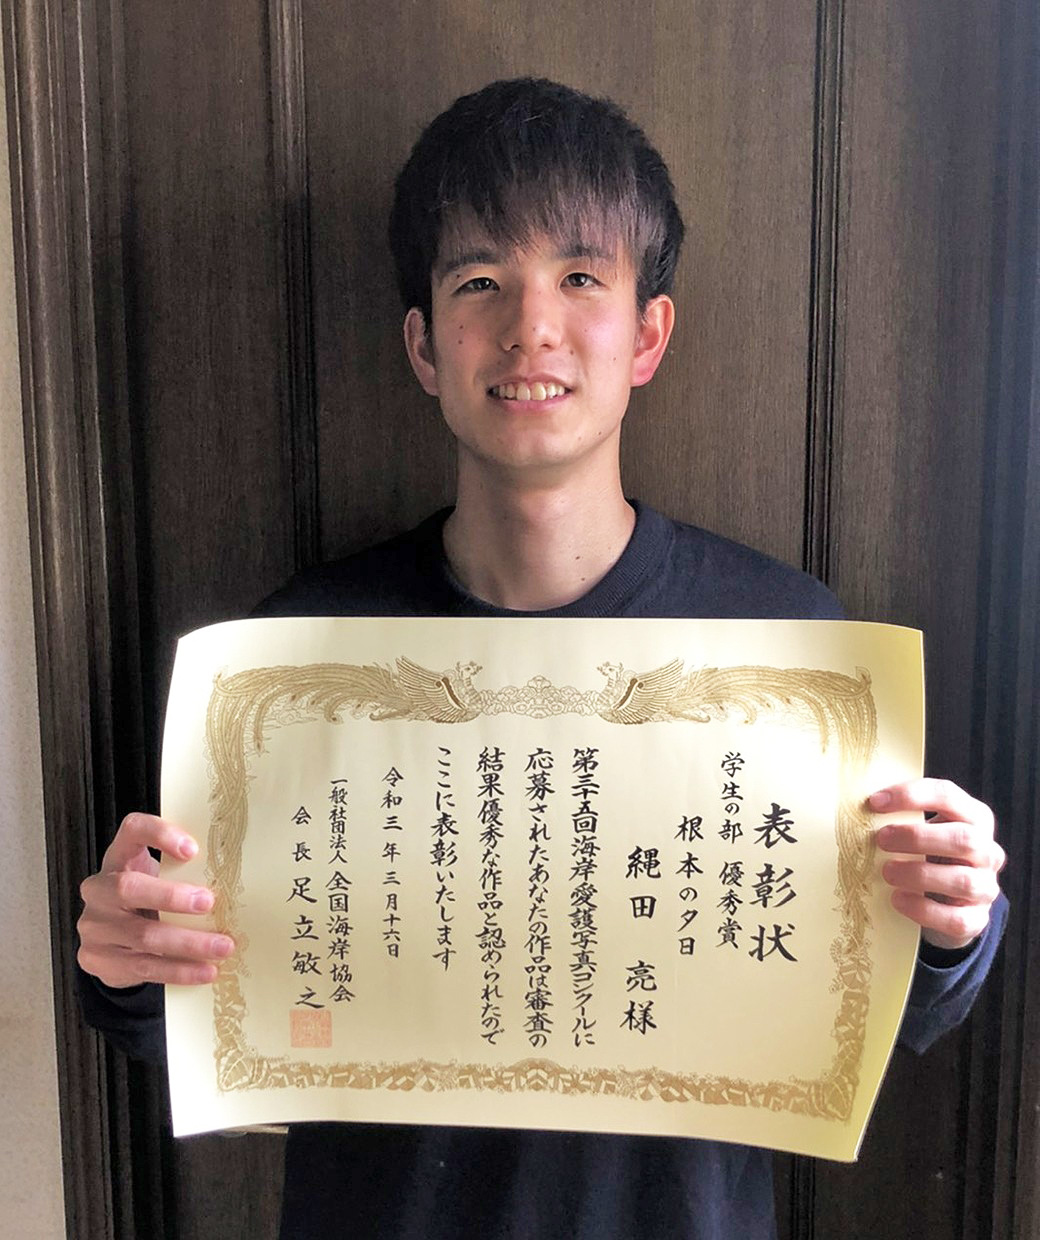 表彰状
学生の部 優秀賞
根本の夕日
縄田 亮様
第三十五回海岸愛護写真コンクールに
応募されたあなたの作品は審査の
結果優秀な作品と認められたので
ここに表彰いたします
令和三年三月十六日
一般社団法人 全国海岸協会
会長 足立敏之